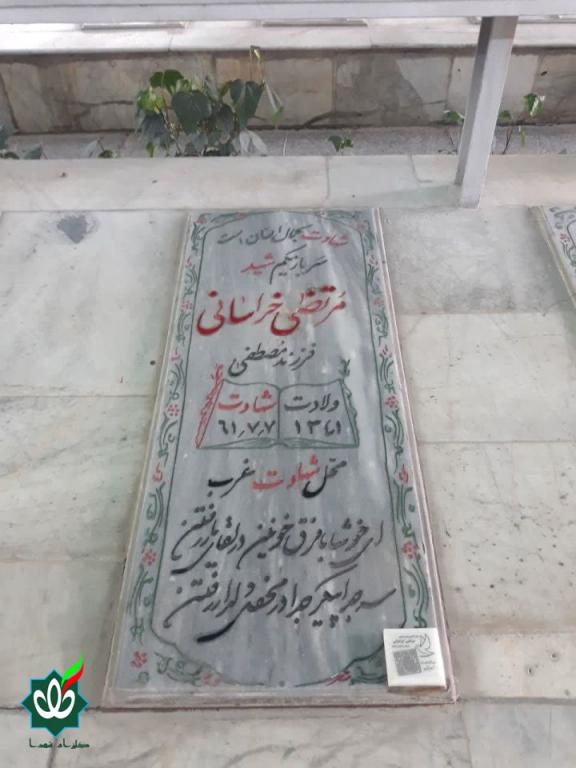 شهادت کمال انسان است
سرباز یکم شهید
مرتضی خراسانی
فرزند مصطفی
ولادت
۱۳۴۱
شهادت
۶۱٫۷٫۷
محل شهادت غرب
ای خوشا با فرق خونین در لقای یار رفتن
سر جدا پیکر جدا در محفل دلدار رفتن
گلزار شهدا